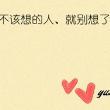 不该想的人、就别想了